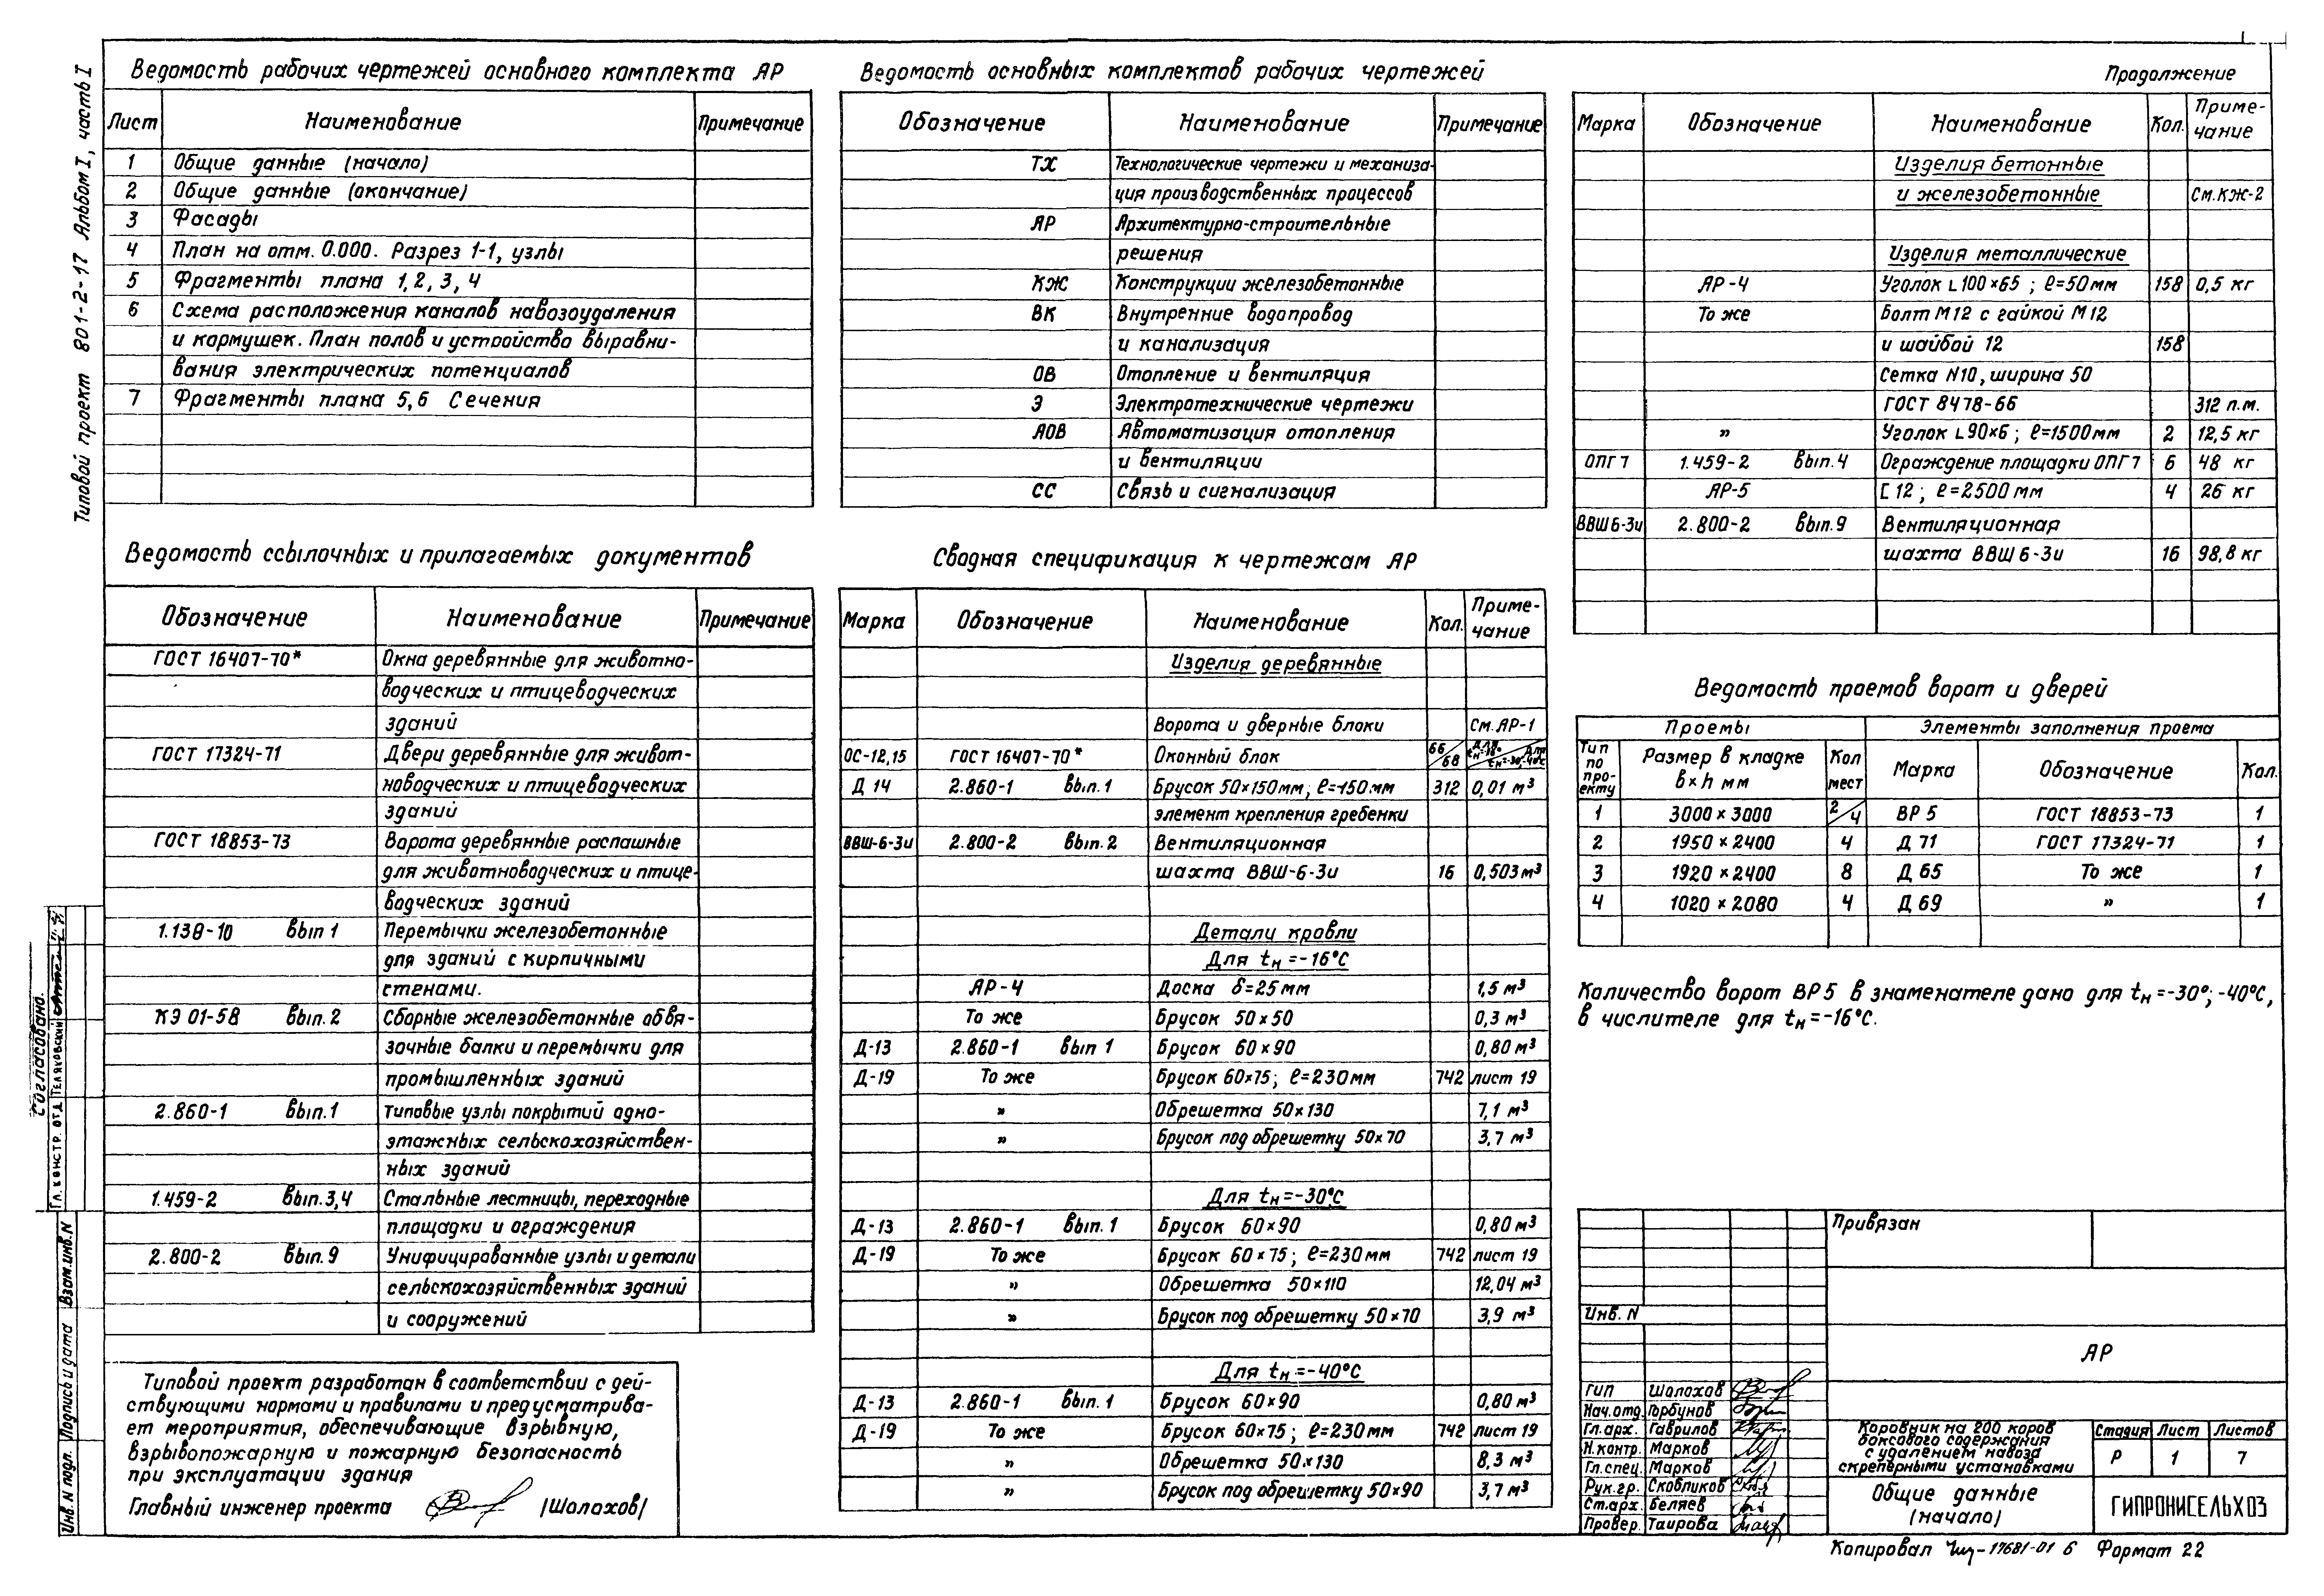 Типовой проект 801-2-17 Альбом I, часть I
Ведомость рабочих чертежей основного комплекта АР
Лист Наименование Примечание
1 Общие данные (начало)
2 Общие данные (окончание)
3 Фасады
4 План на отм. 0.000. Разрез 1-1, узлы
5 Фрагменты плана 1, 2, 3, 4
6 Схема расположения каналов навозоудаления
и кормушек. План полов и устройство выравни-
вания электрических потенциалов
7 Фрагменты плана 5,6 Сечения
Ведомость основных комплектов рабочих чертежей
Обозначение Наименование Примечание
ТХ Технологические чертежи и механиза-
ция производственных процессов
АР Архитектурно-строительные
решения
КЖ Конструкции железобетонные
ВК Внутренние водопровод
и канализация
ОВ Отопление и вентиляция
Э Электротехнические чертежи
АОВ Автоматизация отопления
и вентиляции
СС Связь и сигнализация
Продолжение
Марка Обозначение Наименование Кол. Приме-
чание
Изделия бетонные
и железобетонные См.КЖ-2
Изделия металлические
АР-4 Уголок ∟100×65 ; ℓ=50мм 158 0,5 кг
То же Болт М12 с гайкой М12
и шайбой 12 158
Сетка N10, ширина 50
ГОСТ 8478-66 312 п.м.
» Уголок ∟90×6 ; ℓ=1500мм 2 12,5 кг
ОПГ 7 1.459-2 вып.4 Ограждение площадки ОПГ 7 6 48 кг
АР-5 [ 12 ; ℓ=2500 мм 4 26 кг
ВВШ 6-3и 2.800-2 вып.9 Вентиляционная
шахта ВВШ 6-3и 16 98,8 кг
Ведомость ссылочных и прилагаемых документов
Обозначение Наименование Примечание
ГОСТ 16407-70* Окна деревянные для животно-
водческих и птицеводческих
зданий
ГОСТ 17324-71 Двери деревянные для живот-
новодческих и птицеводческих
зданий
ГОСТ 18853-73 Ворота деревянные распашные
для животноводческих и птице-
водческих зданий
1.138-10 вып 1 Перемычки железобетонные
для зданий с кирпичными
стенами.
КЭ 01-58 вып.2 Сборные железобетонные обвя-
зочные балки и перемычки для
промышленных зданий
2.860-1 вып.1 Типовые узлы покрытий одно-
этажных сельскохозяйствен-
ных зданий
1.459-2 вып.3,4 Стальные лестницы, переходные
площадки и ограждения
2.800-2 вып.9 Унифицированные узлы и детали
сельскохозяйственных зданий
и сооружений
Типовой проект разработан в соответствии с дей-
ствующими нормами и правилами и предусматрива-
ет мероприятия, обеспечивающие взрывную,
взрывопожарную и пожарную безопасность
при эксплуатации здания
Главный инженер проекта /Шолохов/
Сводная спецификация к чертежам АР
Марка Обозначение Наименование Кол. Приме-
чание
Изделия деревянные
Ворота и дверные блоки См.АР-1
ОС-12,15 ГОСТ 16407-70* Оконный блок 66/68 для tн=-16° для tн=-30,-40°С
Д 14 2.860-1 вып.1 Брусок 50×150мм; ℓ=150мм 312 0,01 м³
элемент крепления гребенки
ВВШ-6-3и 2.800-2 вып.2 Вентиляционная
шахта ВВШ-6-3и 16 0,503м³
Детали кровли
Для tн=-16°С
АР-4 Доска δ=25мм 1,5 м³
То же Брусок 50×50 0,3 м³
Д-13 2.860-1 вып 1 Брусок 60×90 0,80 м³
Д-19 То же Брусок 60×75; ℓ=230мм 742 лист 19
» Обрешетка 50×130 7,1 м³
» Брусок под обрешетку 50×70 3,7 м³
Для tн=-30°С
Д-13 2.860-1 вып.1 Брусок 60×90 0,80 м³
Д-19 То же Брусок 60×75; ℓ=230мм 742 лист 19
» Обрешетка 50×110 12,04 м³
» Брусок под обрешетку 50×70 3,9 м³
Для tн=-40°С
Д-13 2.860-1 вып.1 Брусок 60×90 0,80 м³
Д-19 То же Брусок 60×75; ℓ=230мм 742 лист 19
» Обрешетка 50×130 8,3 м³
» Брусок под обрешетку 50×90 3,7 м³
Ведомость проемов ворот и дверей
Проемы Элементы заполнения проема
Тип по про-екту Размер в кладке в×h мм Кол мест Марка Обозначение Кол.
1 3000×3000 2/4 ВР 5 ГОСТ 18853-73 1
2 1950×2400 4 Д 71 ГОСТ 17324-71 1
3 1920×2400 8 Д 65 То же 1
4 1020×2080 4 Д 69 » 1
Количество ворот ВР 5 в знаменателе дано для tн=-30°; -40°С,
в числителе для tн=-16°С.
Привязан
Инв. N
АР
ГИП Шолохов
Нач.отд. Горбунов
Гл.арх. Гаврилов
Н.контр. Марков
Гл.спец. Марков
Рук.гр. Скобликов
Ст.арх. Беляев
Провер. Таирова
Коровник на 200 коров
боксового содержания
с удалением навоза
скреперными установками
Стадия Лист Листов
Р 1 7
Общие данные
(начало)
ГИПРОНИСЕЛЬХОЗ
Копировал 17681-01 6 Формат 22
Согласовано.
Гл. констр. отд Теляковский
Инв. N подл. Подпись и дата Взам.инв.N